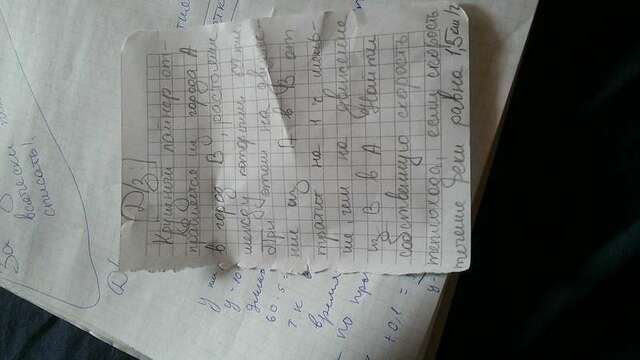 За
всячески
списать!
Д/з
Крушный лайнер от-
правляется из города А
в город В, растояние
между которыми км
При этом на движе-
ние из А в В от
тратит на 1 ч мень-
ше, чем на движение
из В в А Найти
собственную скорость
теплохода, если скорость
течение реки равна 1,5 км/ч
длин
60.5
т.к
время
по пр
+0,1 =